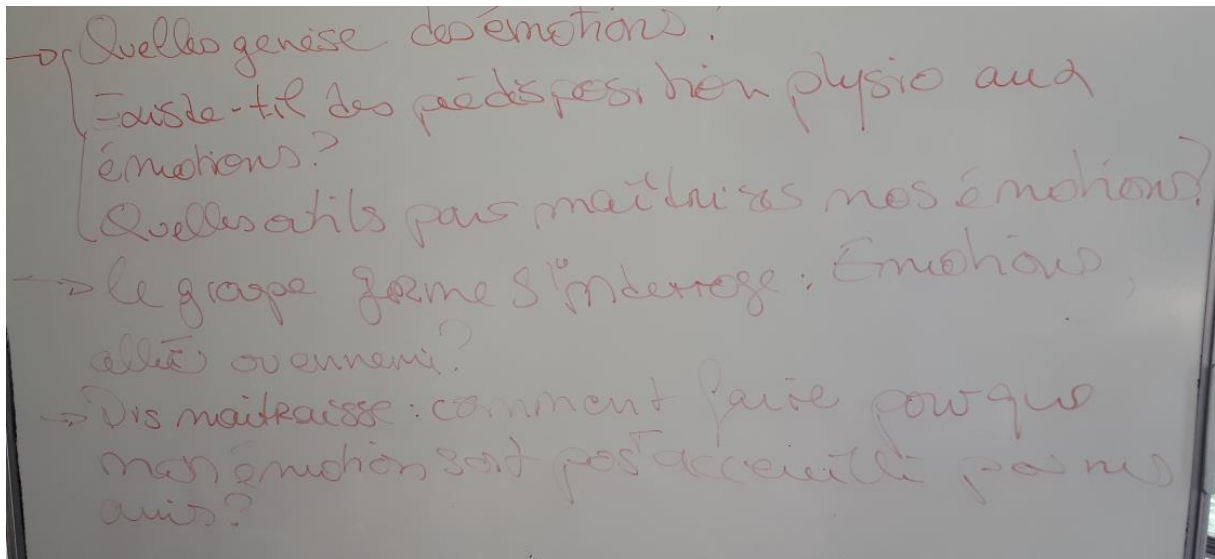 → Quelles genèse des émotions?
Existe-til des prédisposition physio aux
émotions?
Quelles outils pour maîtriser nos émotions?
→ le groupe forme s'interroge : Emotions,
alliés ou ennemi?
→ Dis maitraisse : comment faire pour que
mon émotion soit accueilli par mes
amis?